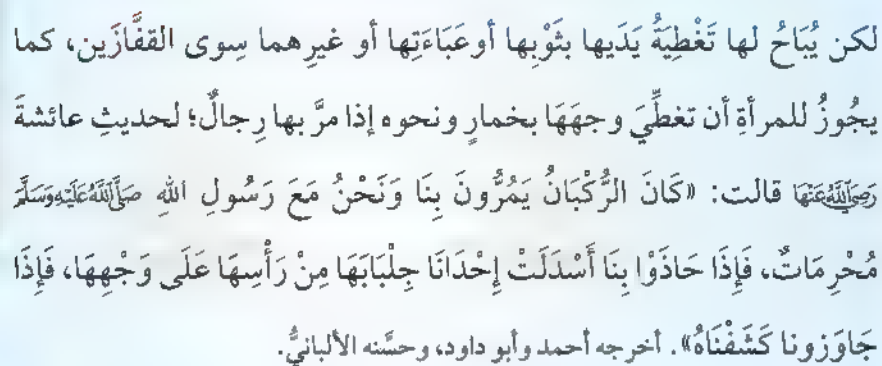 لكن يُبَاحُ لها تَغْطِيَةُ يَدَيها بثَوْبِها أوعَبَاءَتِها أو غيرِهما سِوى القفَّازَين، كما
يجُوزُ للمرأةِ أن تغطِّيَ وجهَهَا بخمارٍ ونحوه إذا مرَّ بها رِجالٌ؛ لحديثِ عائشةَ
رَضِيَاللَّهُعَنْهَا قالت: «كَانَ الرُّكْبَانُ يَمُرُّونَ بِنَا وَنَحْنُ مَعَ رَسُولِ اللهِ صَلَّاللَّهُعَلَيْهِوَسَلَّمَ
مُحْرِمَاتٌ، فَإِذَا حَاذَوْا بِنَا أَسْدَلَتْ إِحْدَانَا جِلْبَابَهَا مِنْ رَأْسِهَا عَلَى وَجْهِهَا، فَإِذَا
جَاوَزونا كَشَفْنَاهُ». أخرجه أحمد وأبو داود، وحسَّنه الألبانيُّ.